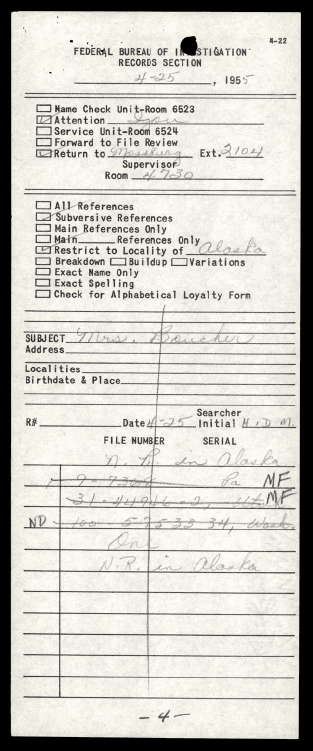 4-22
FEDERAL BUREAU OF INVESTIGATION
RECORDS SECTION
4-25, 1955
Name Check Unit-Room 6523
Attention
Service Unit-Room 6524
Forward to File Review
Return to Mossburg Ext. 2104
Supervisor
Room 4730
All References
Subversive References
Main References Only
Main References Only
Restrict to Locality of Alaska
Breakdown Buildup Variations
Exact Name Only
Exact Spelling
Check for Alphabetical Loyalty Form
SUBJECT Mrs. Boucher
Address
Localities
Birthdate & Place
R# Date 4-25 Searcher Initial H.D.M.
FILE NUMBER SERIAL
N.R. in Alaska
9-7368 Pa MF
31-44946-2, MF
ND 100-57533 34, Wash.
One
N.R. in Alaska
-4-